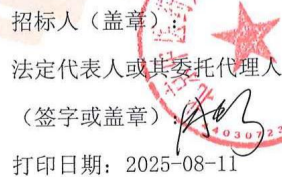 招标人（盖章）：
法定代表人或其委托代理人
（签字或盖章）：
打印日期：2025-08-11
4030722